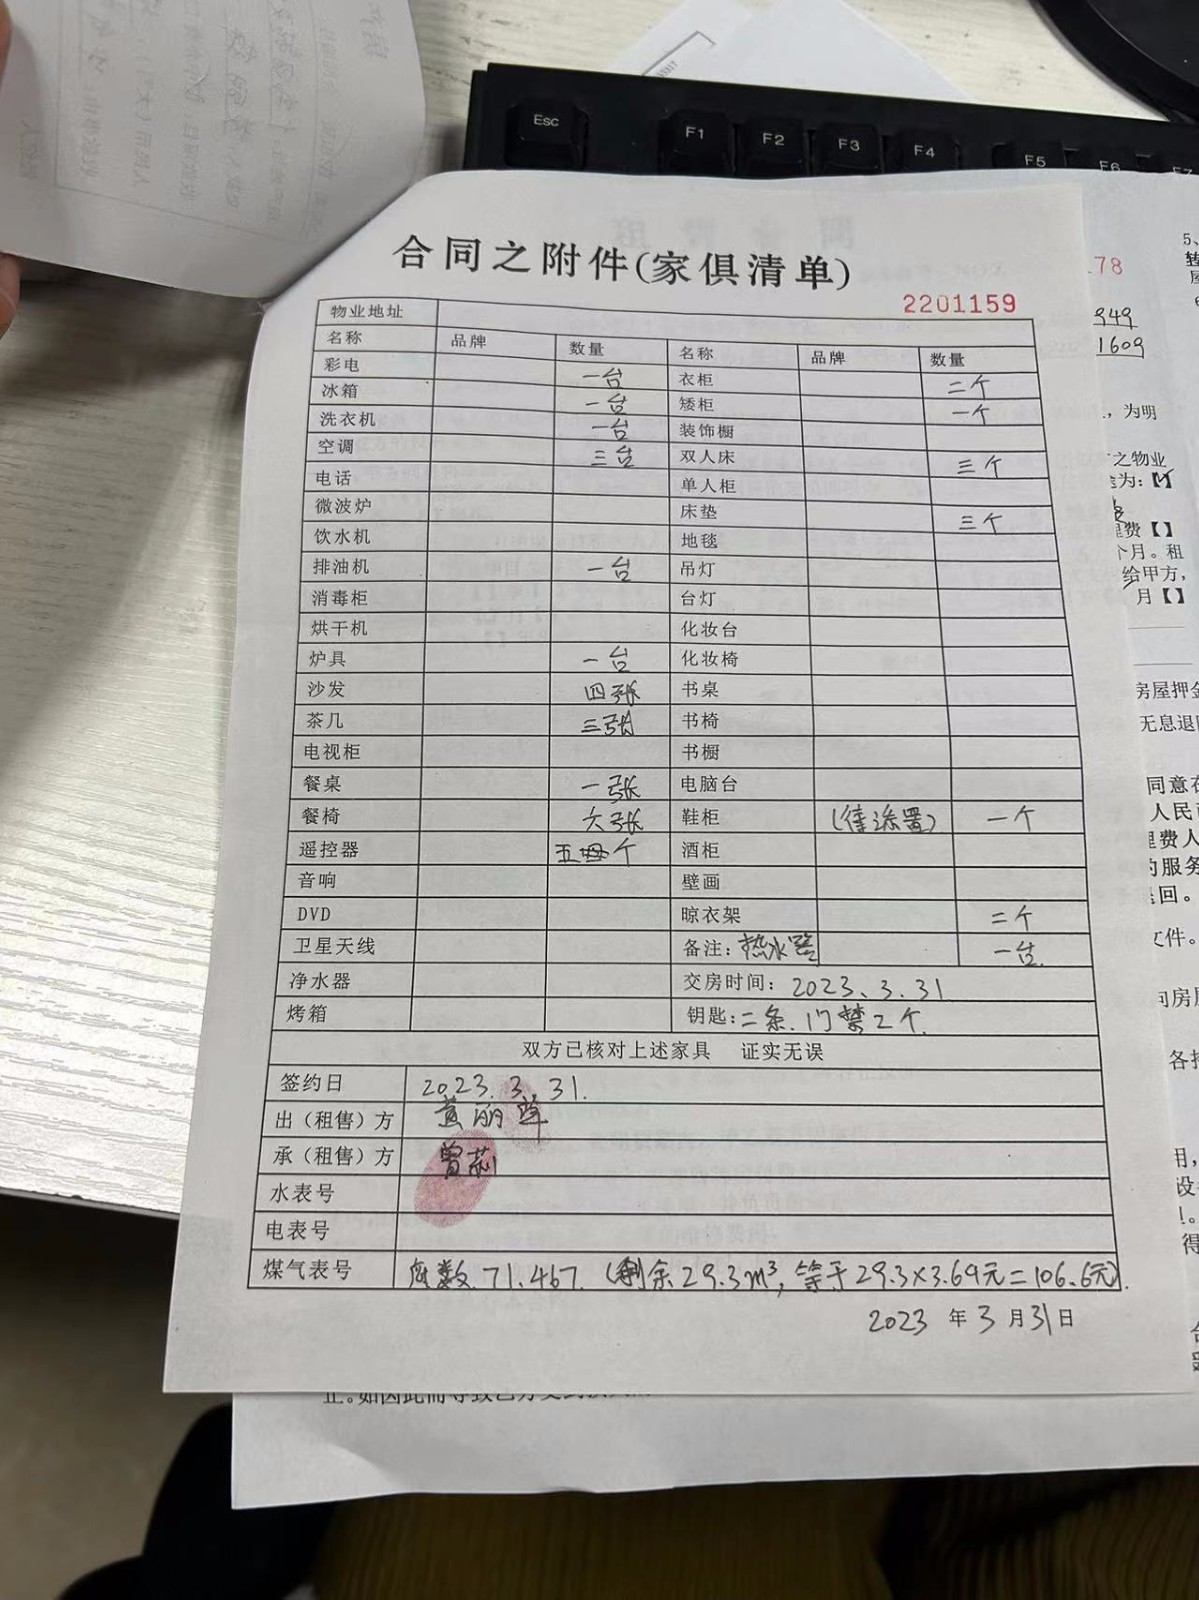 Esc F1 F2 F3 F4 F5 F6 F7
合同之附件(家俱清单)
2201159
物业地址
名称 品牌 数量 名称 品牌 数量
彩电 一台 衣柜 二个
冰箱 一台 矮柜 一个
洗衣机 一台 装饰橱
空调 三台 双人床 三个
电话 单人柜
微波炉 床垫 三个
饮水机 地毯
排油机 一台 吊灯
消毒柜 台灯
烘干机 化妆台
炉具 一台 化妆椅
沙发 四张 书桌
茶几 三张 书椅
电视柜 书橱
餐桌 一张 电脑台
餐椅 六张 鞋柜 (待添置) 一个
遥控器 五个 酒柜
音响 壁画
DVD 晾衣架 二个
卫星天线 备注:热水器 一台.
净水器 交房时间: 2023.3.31
烤箱 钥匙:二条.门禁2个.
双方已核对上述家具 证实无误
签约日 2023.3.31.
出(租售)方 黄丽
承(租售)方 曾莉
水表号
电表号
煤气表号 度数.71.467.(剩余29.3m³,等于29.3×3.69元=106.6元).
2023 年 3 月 31 日
78
949
1609
,为明
之物业
为:【
费【】
个月。租
给甲方,
月【】
房屋押金
无息退
同意在
人民
费人
的服务
回。
文件。
向房
各